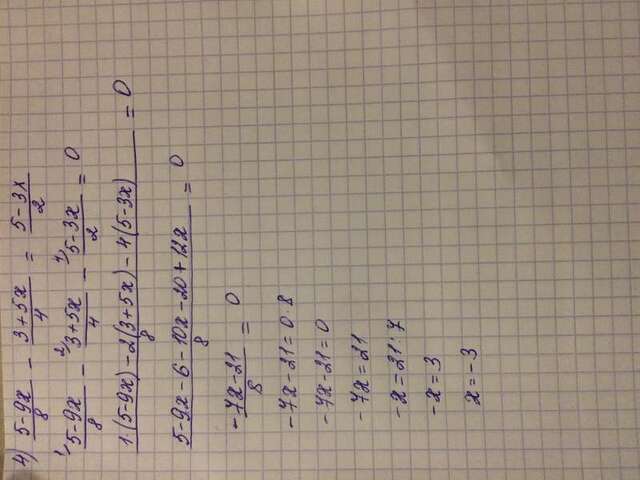 4) (5-9x)/8 - (3+5x)/4 = (5-3x)/2
1) (5-9x)/8 - 2) (3+5x)/4 - 4) (5-3x)/2 = 0
(1·(5-9x)-2(3+5x)-4(5-3x))/8 = 0
(5-9x-6-10x-20+12x)/8 = 0
(-7x-21)/8 = 0
-7x-21=0·8
-7x-21=0
-7x=21
-x=21:7
-x=3
x=-3